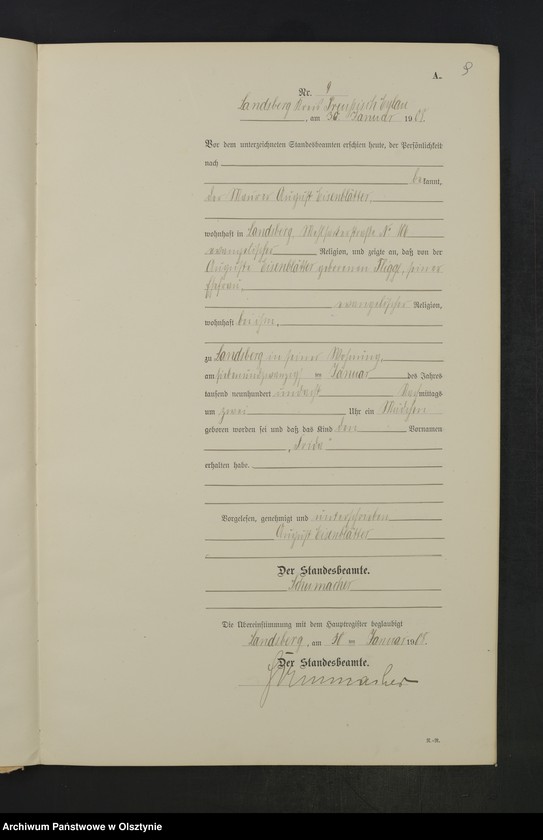 A.
Nr. 9
Landsberg Kreis Preußisch Eylau
, am 30. Januar 1908.
Vor dem unterzeichneten Standesbeamten erschien heute, der Persönlichkeit
nach
bekannt,
der Maurer August Eisenblätter,
wohnhaft in Landsberg, No
evangelischer Religion, und zeigte an, daß von der
Auguste Eisenblätter geborenen seiner
Ehefrau,
evangelischer Religion,
wohnhaft bei ihm,
zu Landsberg in seiner Wohnung,
am siebenundzwanzig ten Januar des Jahres
tausend neunhundert und acht mittags
um zwei Uhr ein Mädchen
geboren worden sei und daß das Kind den Vornamen
erhalten habe.
Vorgelesen, genehmigt und unterschrieben
August Eisenblätter
Der Standesbeamte.
Schumacher
Die Übereinstimmung mit dem Hauptregister beglaubigt
Landsberg, am 30 ten Januar 1908.
Der Standesbeamte.
Schumacher
Archiwum Państwowe w Olsztynie